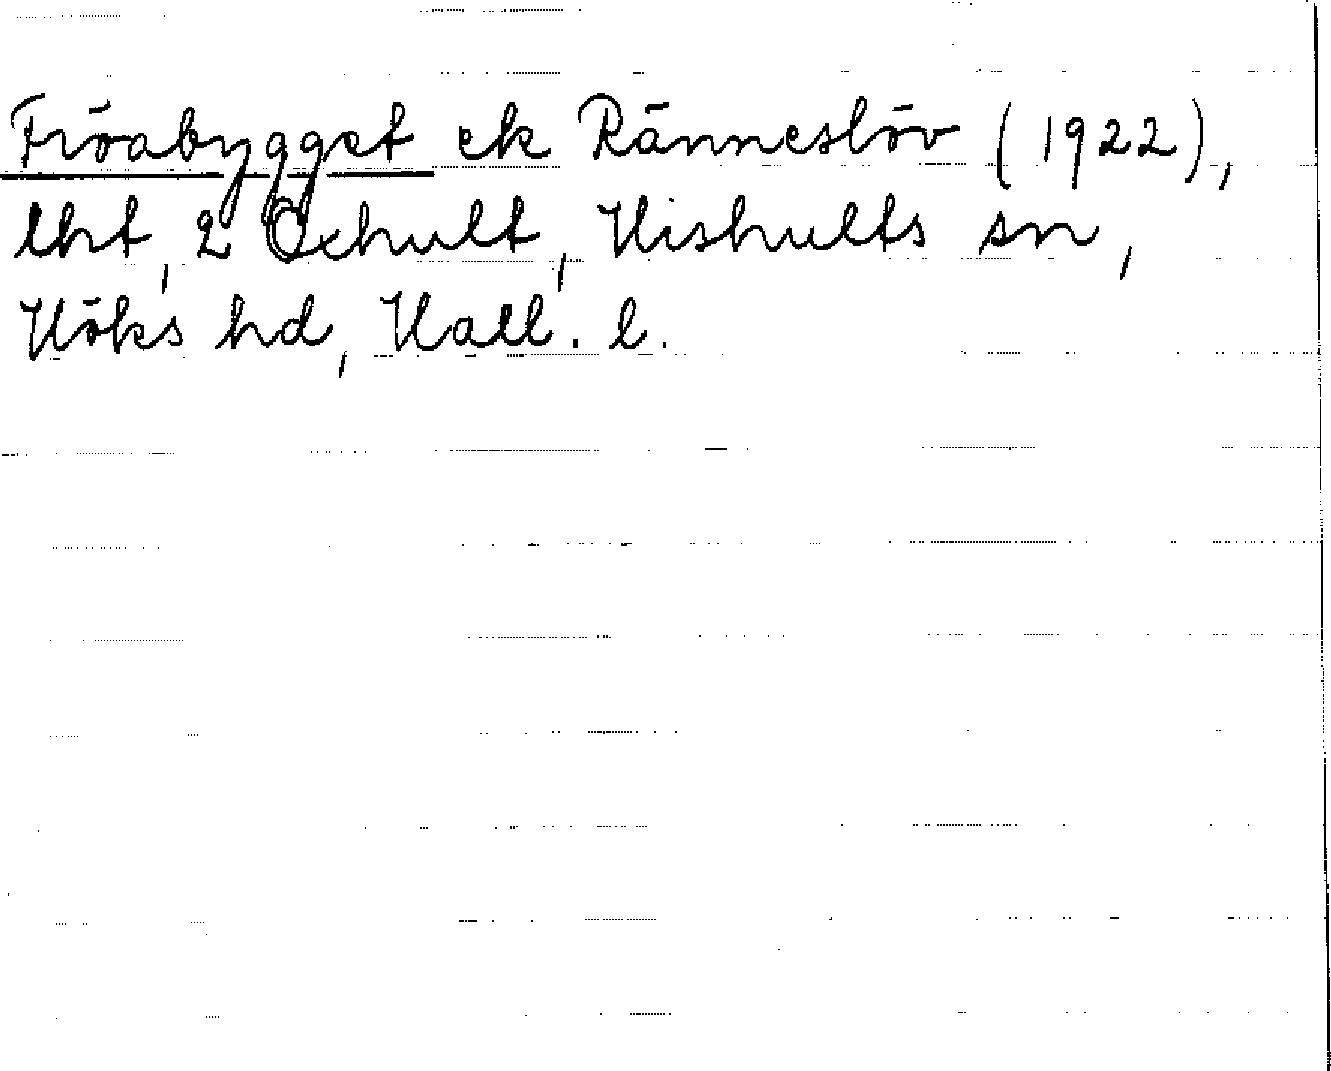 Fröabygget ek Ränneslöv (1922),
lht, 2 Oxhult, Hishults sn,
Höks hd, Hall. l.